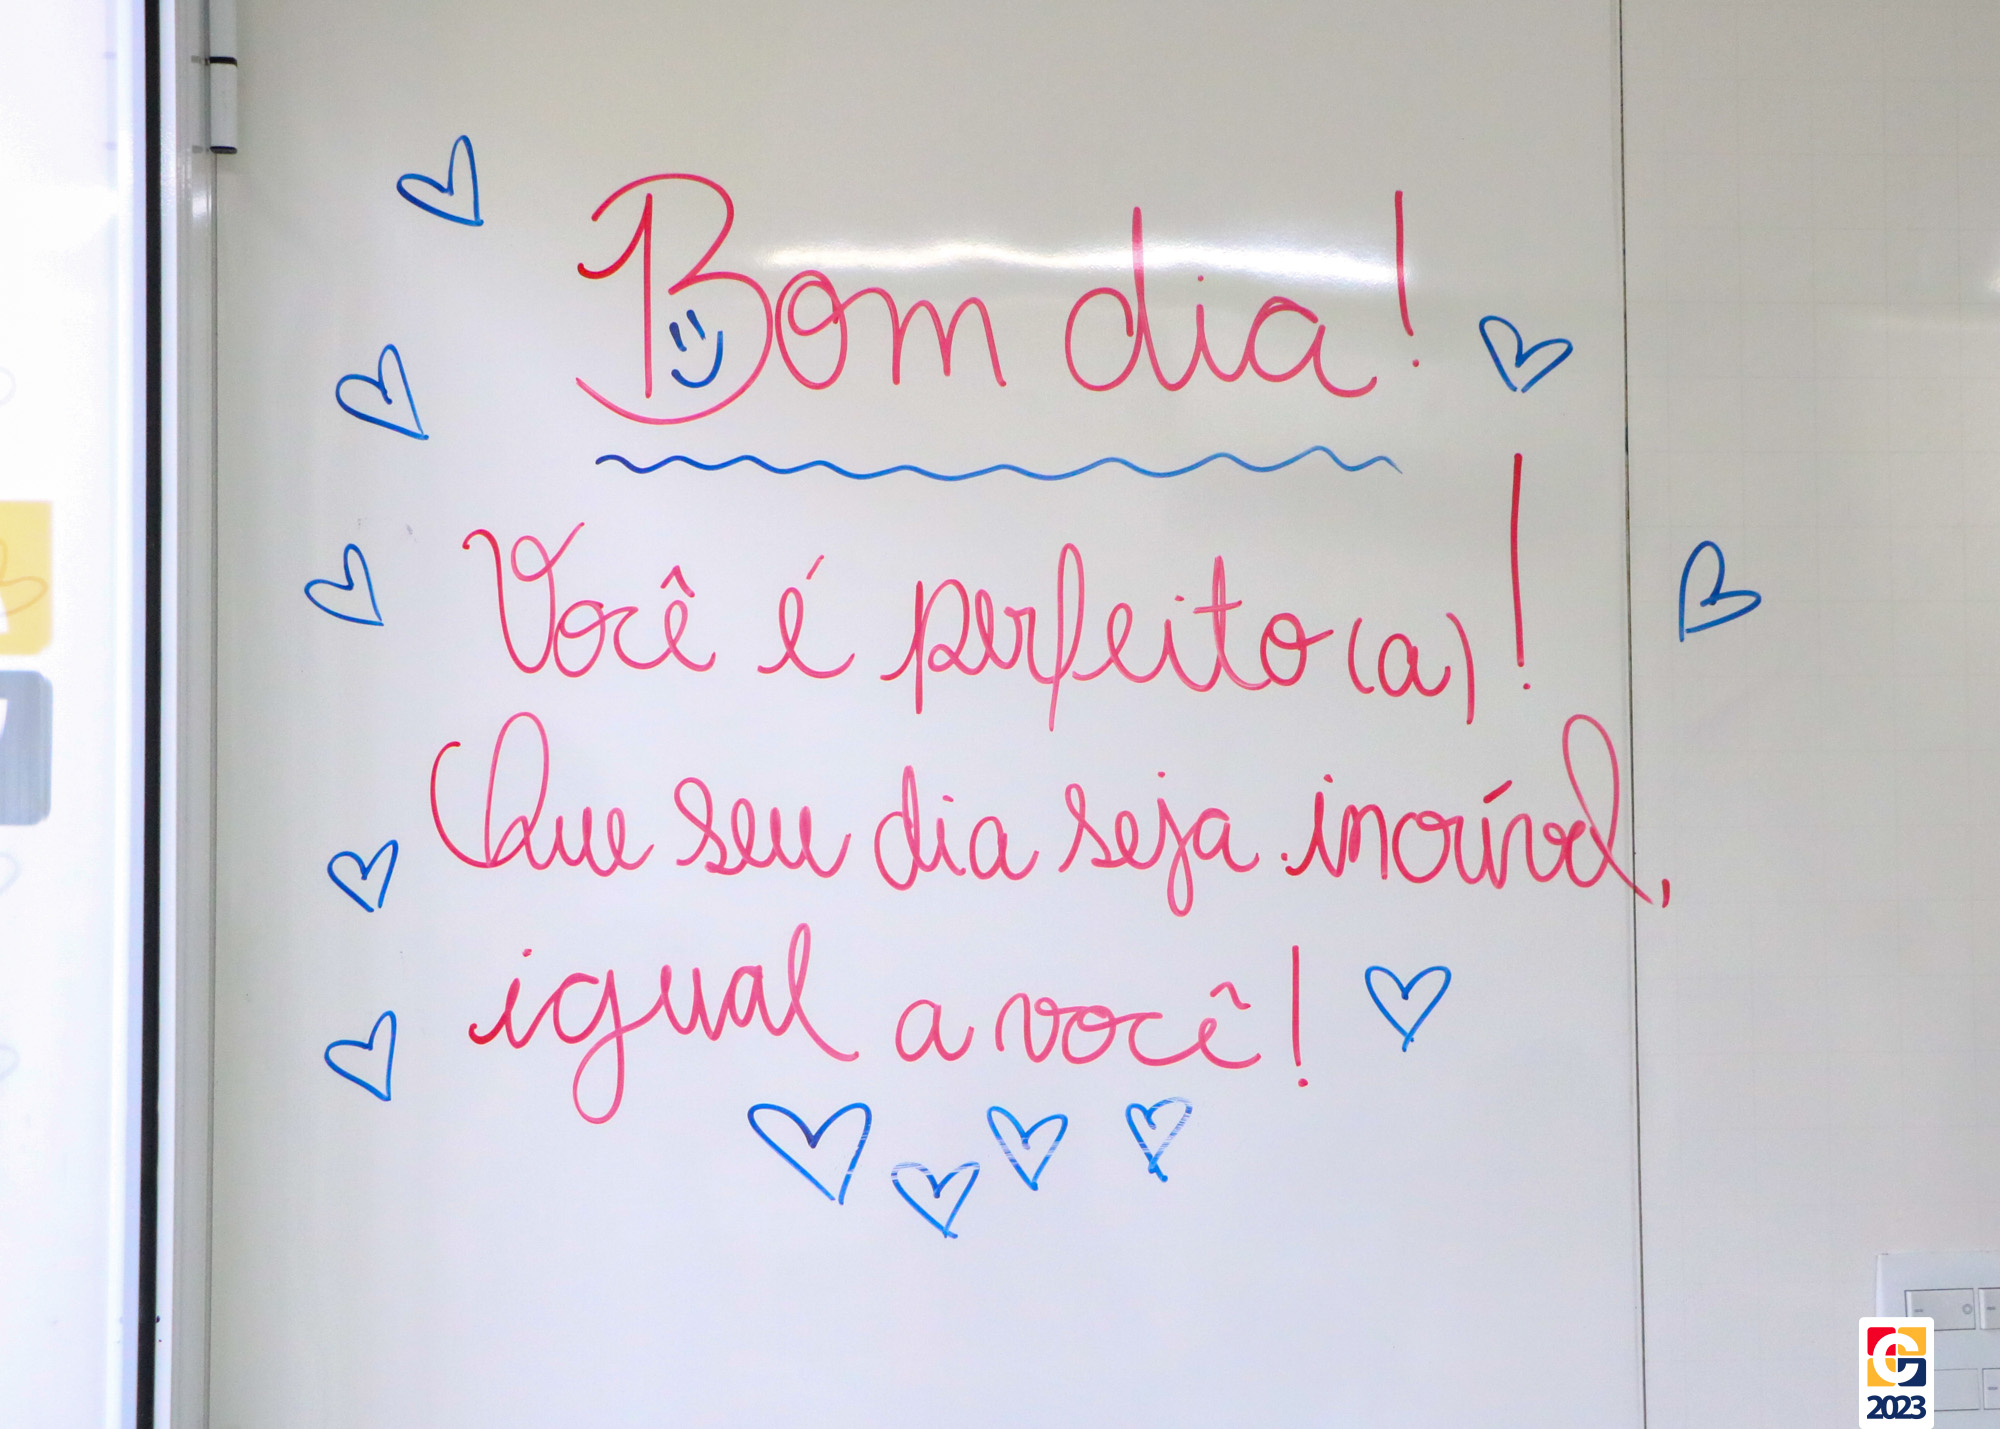 Bom dia!
Você é perfeito(a)!
Que seu dia seja incrível,
igual a você!
2023